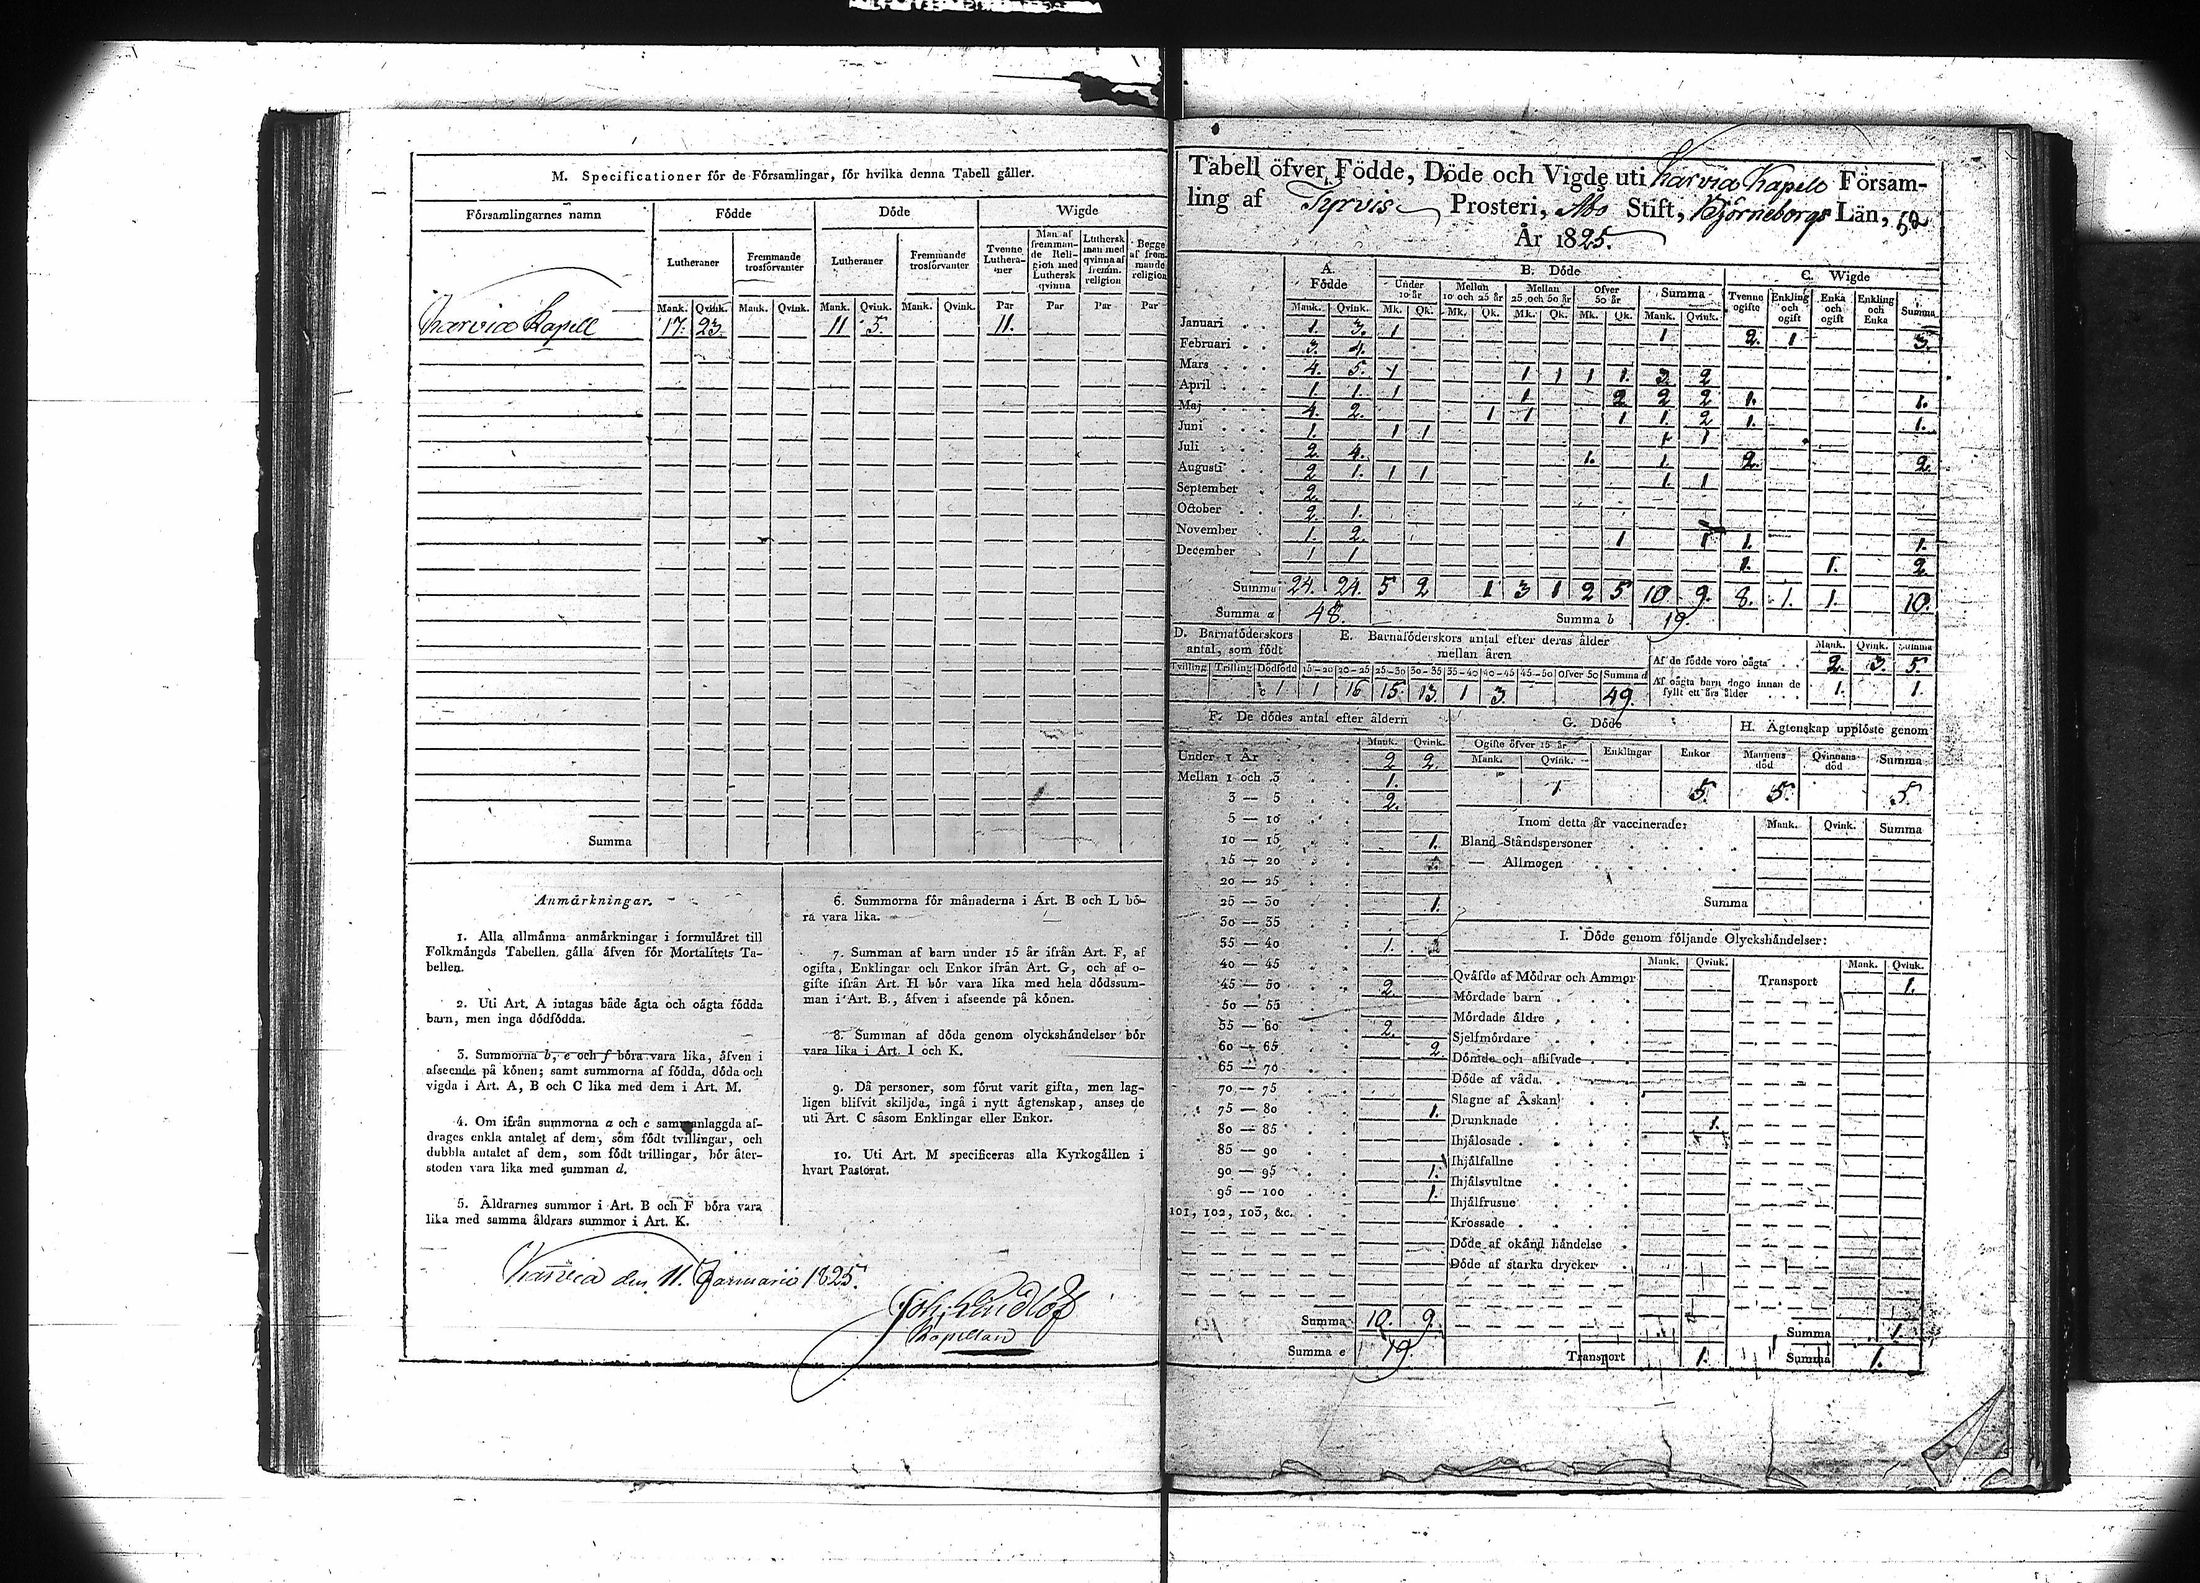 M. Specificationer för de Församlingar, för hvilka denna Tabell gäller.
Församlingarnes namn
Födde
Döde
Wigde
Lutheraner
Fremmande trosförvanter
Lutheraner
Fremmande trosförvanter
Tvenne Lutheraner
Man af fremmande Religion med Luthersk qvinna
Luthersk man med qvinna af fremm. religion
Begge af fremmande religion
Mank. Qvink. Mank. Qvink. Mank. Qvink. Mank. Qvink. Par Par Par Par
Karvia Kapell 17. 23. 11 5. 11.
Summa
Anmärkningar.
1. Alla allmänna anmärkningar i formuläret till
Folkmängds Tabellen gälla äfven för Mortalitets Ta-
bellen.
2. Uti Art. A intagas både ägta och oägta födda
barn, men inga dödfödda.
3. Summorna b, e och f böra vara lika, äfven i
afseende på könen; samt summorna af födda, döda och
vigda i Art. A, B och C lika med dem i Art. M.
4. Om ifrån summorna a och c sammanlaggda af-
drages enkla antalet af dem, som födt tvillingar, och
dubbla antalet af dem, som födt trillingar, bör åter-
stoden vara lika med summan d.
5. Åldrarnes summor i Art. B och F böra vara
lika med samma åldrars summor i Art. K.
6. Summorna för månaderna i Art. B och L bö-
ra vara lika.
7. Summan af barn under 15 år ifrån Art. F, af
ogifta, Enklingar och Enkor ifrån Art. G, och af o-
gifte ifrån Art. H bör vara lika med hela dödssum-
man i Art. B., äfven i afseende på könen.
8. Summan af döda genom olyckshändelser bör
vara lika i Art. I och K.
9. Då personer, som förut varit gifta, men lag-
ligen blifvit skiljda, ingå i nytt ägtenskap, anses de
uti Art. C såsom Enklingar eller Enkor.
10. Uti Art. M specificeras alla Kyrkogällen i
hvart Pastorat.
Karvia den 11. Januario 1825.
Joh. Lindlöf
Kapellan
Tabell öfver Födde, Döde och Vigde uti Karvia Kapell Försam-
ling af Tyrvis Prosteri, Åbo Stift, Björneborgs Län, 52
År 1825.
A. Födde
B. Döde
C. Wigde
Under 10 år
Mellan 10 och 25 år
Mellan 25 och 50 år
Öfver 50 år
Summa
Tvenne ogifte
Enkling och ogift
Enka och ogift
Enkling och Enka
Summa
Mank. Qvink. Mk. Qk. Mk. Qk. Mk. Qk. Mk. Qk. Mank. Qvink.
Januari 1. 3. 1 1 2. 1 3.
Februari 3. 4.
Mars 4. 5. 1 1 1 1 1. 3. 2
April 1. 1. 1 1 2 2 2 1. 1.
Maj 4. 2. 1 1 1 1. 2 1. 1.
Juni 1. 1 1 1 1
Juli 2. 4. 1. 1. 2. 2.
Augusti 2 1. 1 1 1. 1
September 2.
October 2. 1.
November 1. 2. 1 1 1. 1.
December 1 1 1. 1. 2.
Summa 24. 24. 5 2 1 3 1 2 5 10 9. 8. 1. 1. 10.
Summa a 48. Summa b 19.
D. Barnaföderskors antal, som födt
E. Barnaföderskors antal efter deras ålder mellan åren
Tvilling Trilling Dödfödd 15—20 20—25 25—30 30—35 35—40 40—45 45—50 Öfver 50 Summa d
c 1 1 16 15. 13. 1 3. 49.
Mank. Qvink. Summa
Af de födde voro oägta 2. 3. 5.
Af oägta barn dogo innan de fyllt ett års ålder 1. 1.
F. De dödes antal efter åldern
Mank. Qvink.
Under 1 År 2 2.
Mellan 1 och 3 1.
3 — 5 2.
5 — 10
10 — 15 1.
15 — 20
20 — 25
25 — 30 1.
30 — 35
35 — 40 1.
40 — 45
45 — 50 2.
50 — 55
55 — 60 2.
60 — 65 2.
65 — 70
70 — 75
75 — 80 1.
80 — 85
85 — 90
90 — 95 1.
95 — 100 1.
101, 102, 103, &c.
Summa 10. 9.
Summa e 19.
G. Döde
Ogifte öfver 15 år
Enklingar
Enkor
Mank. Qvink.
1 5.
H. Ägtenskap upplöste genom
Mannens död
Qvinnans död
Summa
5. 5.
Inom detta år vaccinerade:
Mank. Qvink. Summa
Bland Ståndspersoner
— Allmogen
Summa
I. Döde genom följande Olyckshändelser:
Mank. Qvink. Mank. Qvink.
Qväfde af Mödrar och Ammor
Transport 1.
Mördade barn
Mördade äldre
Sjelfmördare
Dömde och aflifvade
Döde af våda
Slagne af Åskan
Drunknade 1.
Ihjälosade
Ihjälfallne
Ihjälsvultne
Ihjälfrusne
Krossade
Döde af okänd händelse
Döde af starka drycker
Summa 1.
Transport 1. Summa 1.